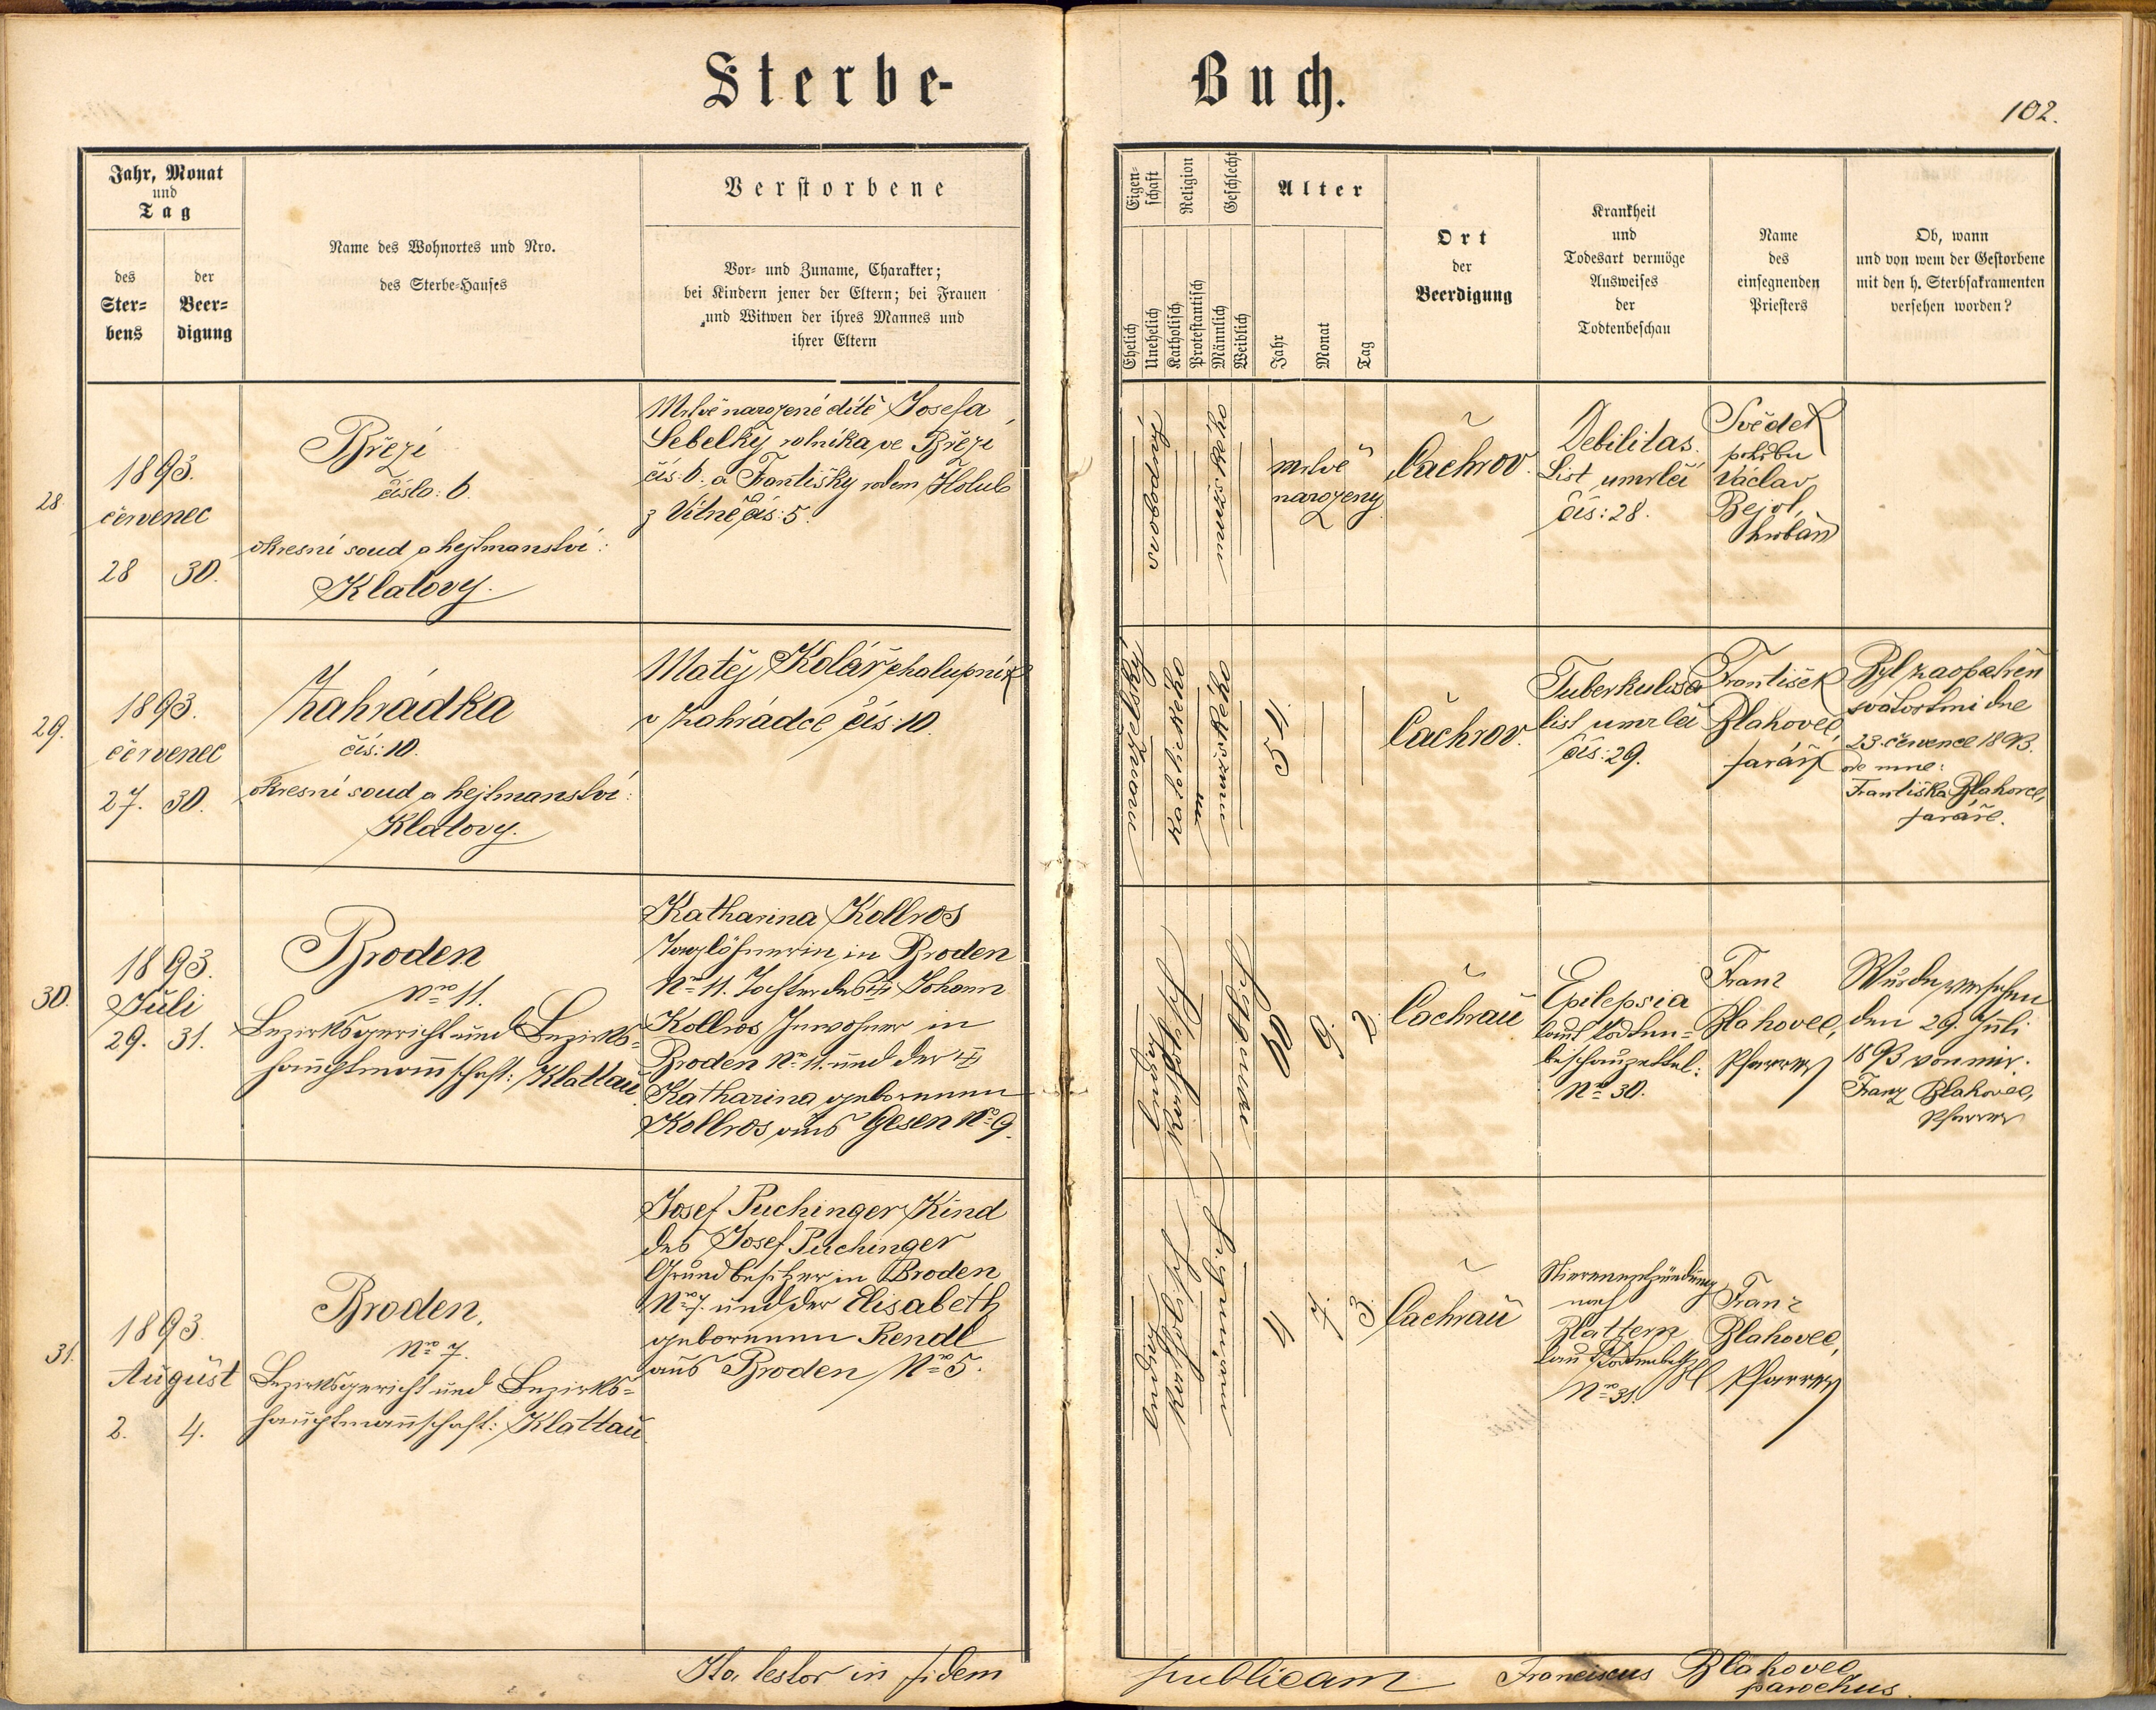 Sterbe-
Buch.
102.
Jahr, Monat
und
Tag
des
Ster-
bens
der
Beer-
digung
Name des Wohnortes und Nro.
des Sterbe-Hauses
Verstorbene
Vor- und Zuname, Charakter;
bei Kindern jener der Eltern; bei Frauen
und Witwen der ihres Mannes und
ihrer Eltern
Eigen-
schaft
Religion
Geschlecht
Ehelich
Unehelich
Katholisch
Protestantisch
Männlich
Weiblich
Alter
Jahr
Monat
Tag
Ort
der
Beerdigung
Krankheit
und
Todesart vermöge
Ausweises
der
Todtenbeschau
Name
des
einsegnenden
Priesters
Ob, wann
und von wem der Gestorbene
mit den h. Sterbsakramenten
versehen worden?
28.
1893.
červenec
28 30.
Březí
číslo: 6.
okresní soud a hejtmanství:
Klatovy.
Mrtvě narozené dítě Josefa
Sebelky rolníka ve Březí
čís: 6. a Františky rodem Holub
z Vitně čís: 5.
svobodný
mužského
mrtvě
narozený
Čachrov.
Debilitas.
List umrlčí
čís: 28.
Svědek
pohřbu
Václav
Bejvl,
hrobař
29.
1893.
červenec
27. 30.
Zahrádka
čís: 10.
okresní soud a hejtmanství:
Klatovy.
Matěj Kolář chalupník
v Zahrádce čís: 10.
manželský
katolického
mužského
54
Čachrov.
Tuberkulosa
list umrlčí
čís: 29.
František
Blahovec,
farář
Byl zaopatřen
svátostmi dne
23. července 1893.
ode mne:
Františka Blahovce,
faráře.
30.
1893.
Juli
29. 31.
Broden
Nro 11.
Bezirksgericht und Bezirks-
hauptmannschaft: Klattau
Katharina Kollros
Taglöhnerin in Broden
Nro 11. Tochter des Johann
Kollros Inwohner in
Broden Nro 11. und der
Katharina geborenen
Kollros aus Gesen Nro 9.
ledig
katholisch
9. 2.
Čachrau
Epilepsia
laut Todten-
beschauzettel:
Nro 30.
Franz
Blahovec,
Pfarrer
Wurde versehen
den 29. Juli
1893 von mir.
Franz Blahovec,
Pfarrer
31.
1893.
August
2. 4.
Broden,
Nro 7.
Bezirksgericht und Bezirks-
hauptmannschaft: Klattau.
Josef Puchinger Kind
des Josef Puchinger
Grundbesitzer in Broden
Nro 7. und der Elisabeth
geborenen Rendl
aus Broden Nro 5.
ledig
katholisch
männlich
4 7. 3.
Čachrau
Nierenentzündung
nach
Blattern
laut
Nro 31.
Franz
Blahovec,
Pfarrer
Ita testor in fidem
publicam
Franciscus Blahovec,
parochus.